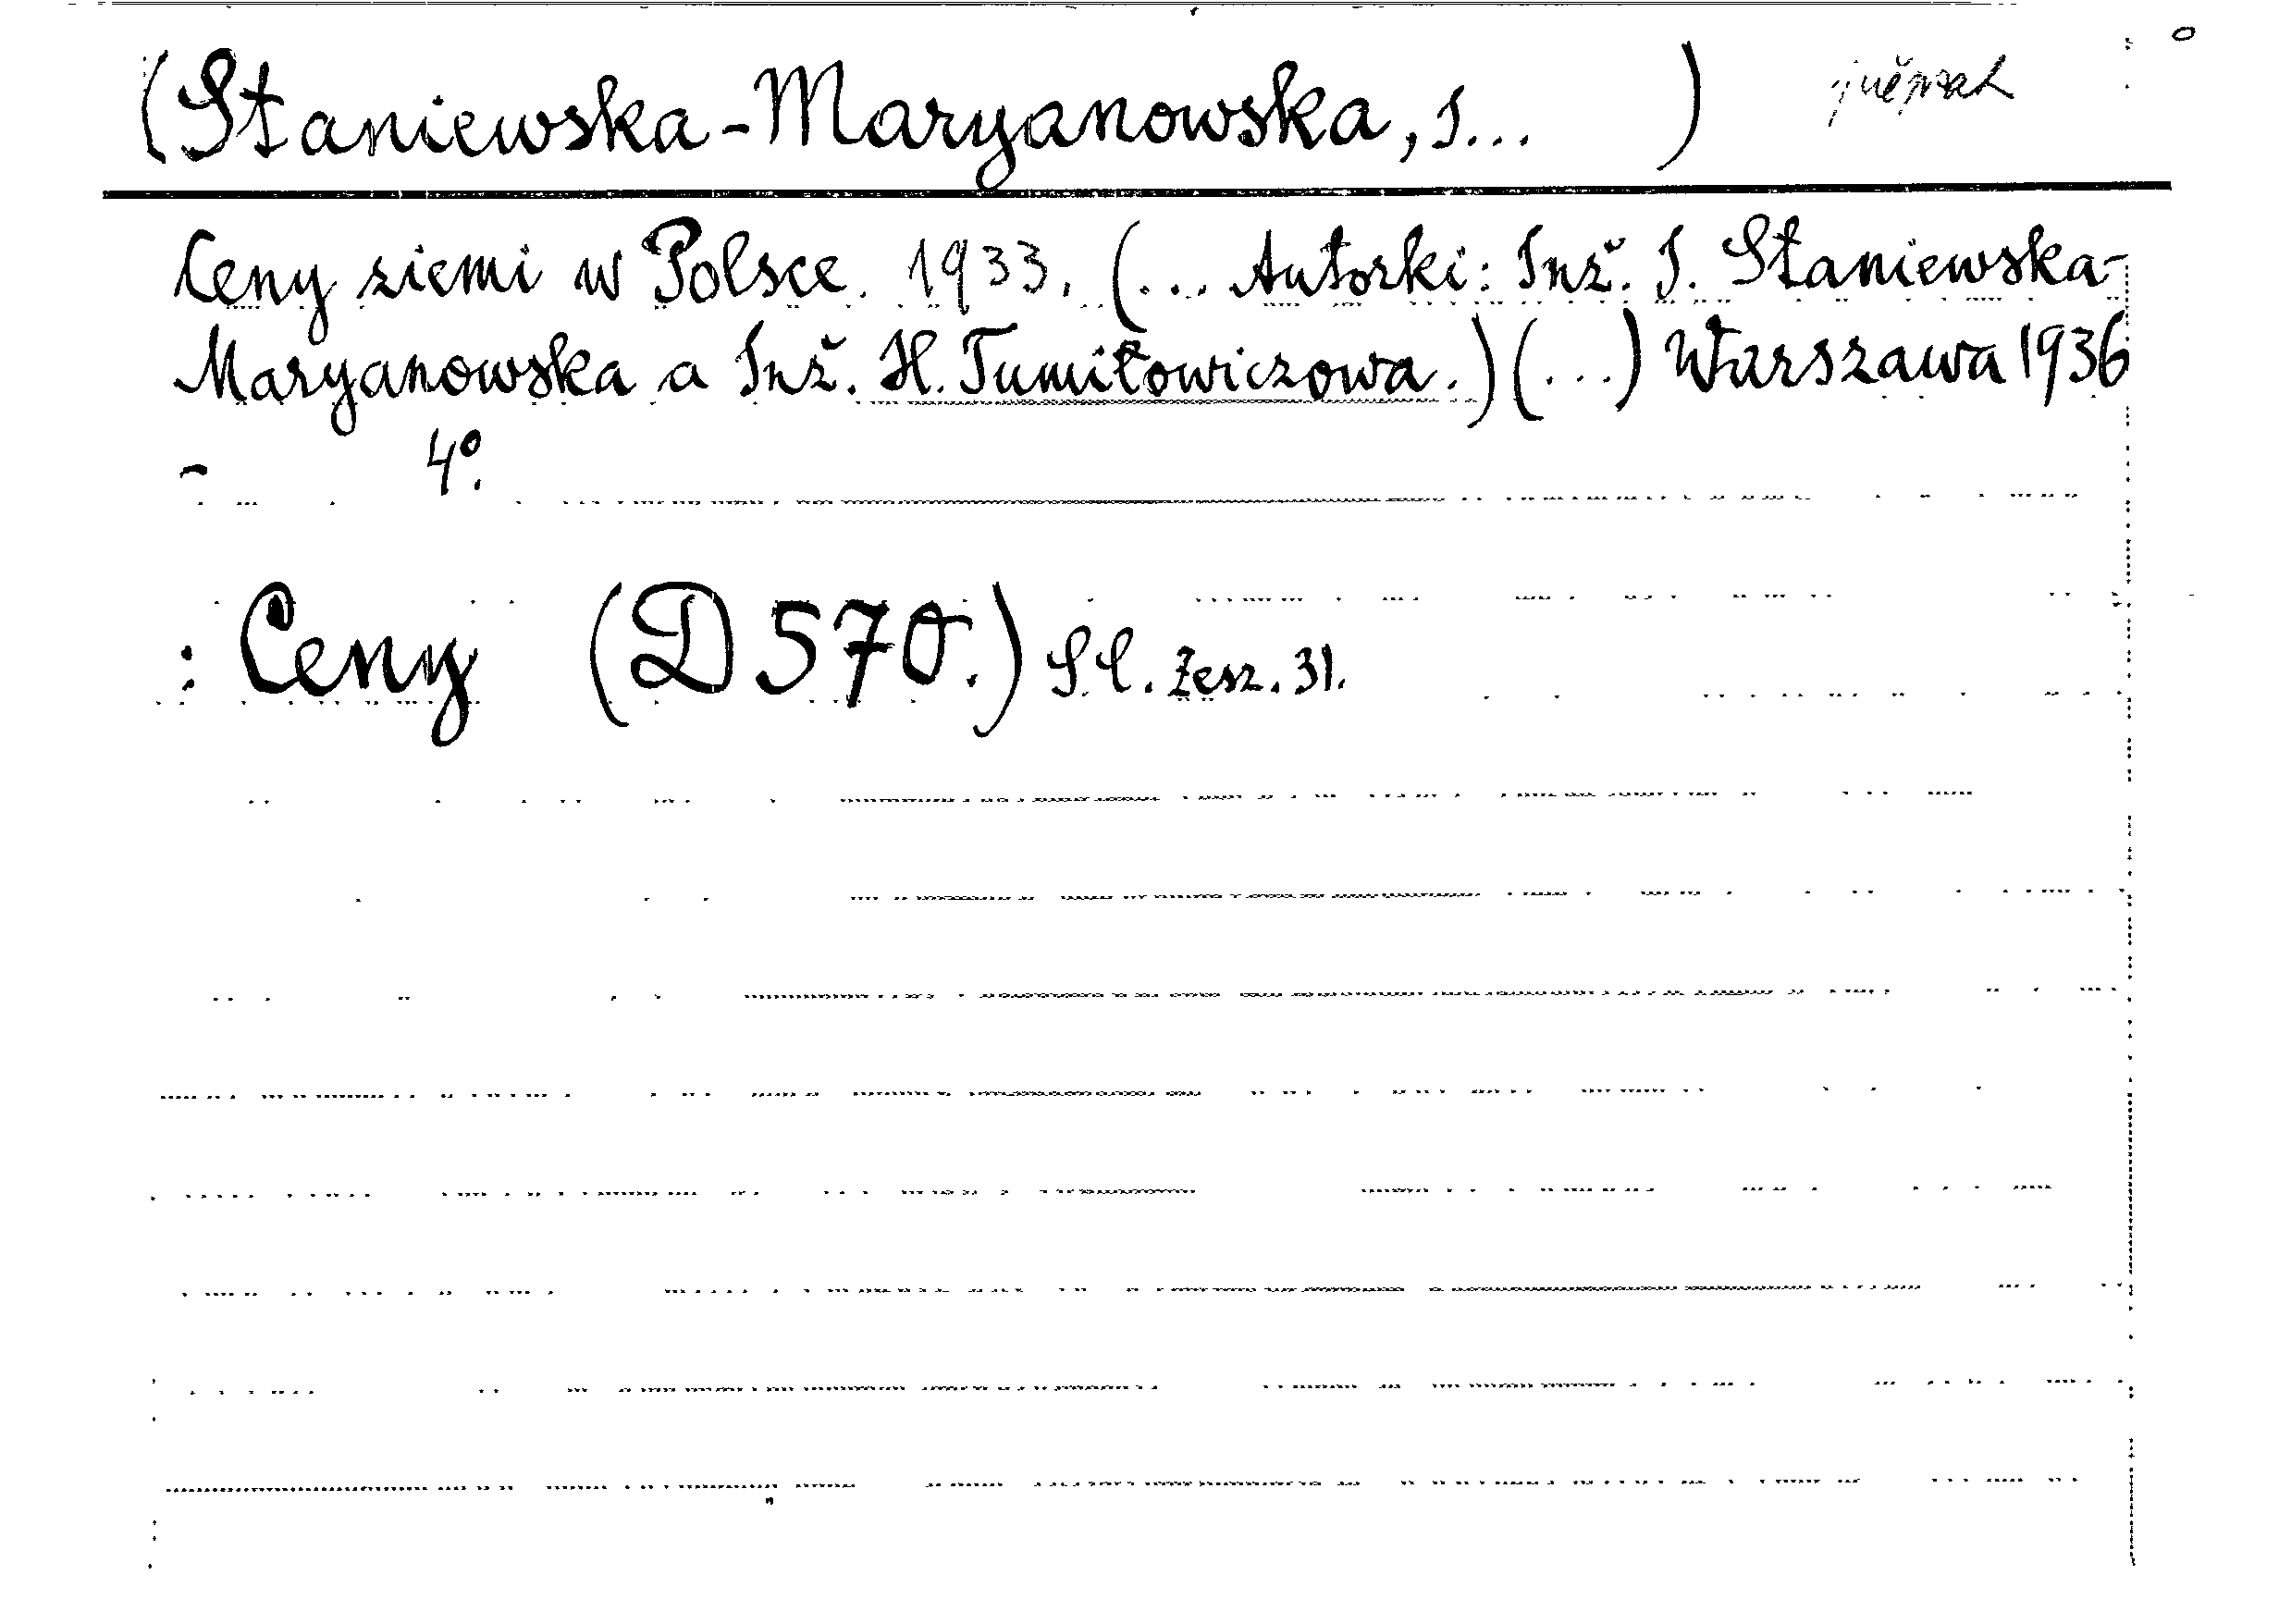 (Staniewska-Maryanowska, J... )
Ceny ziemi w Polsce. 1933. (... Autorki: Inž. J. Staniewska-
Maryanowska a Inž. H. Tumiłowiczowa.) (...) Warszawa 1936
- 4°.
: Ceny (D 570.) S.C. Zesz. 31.